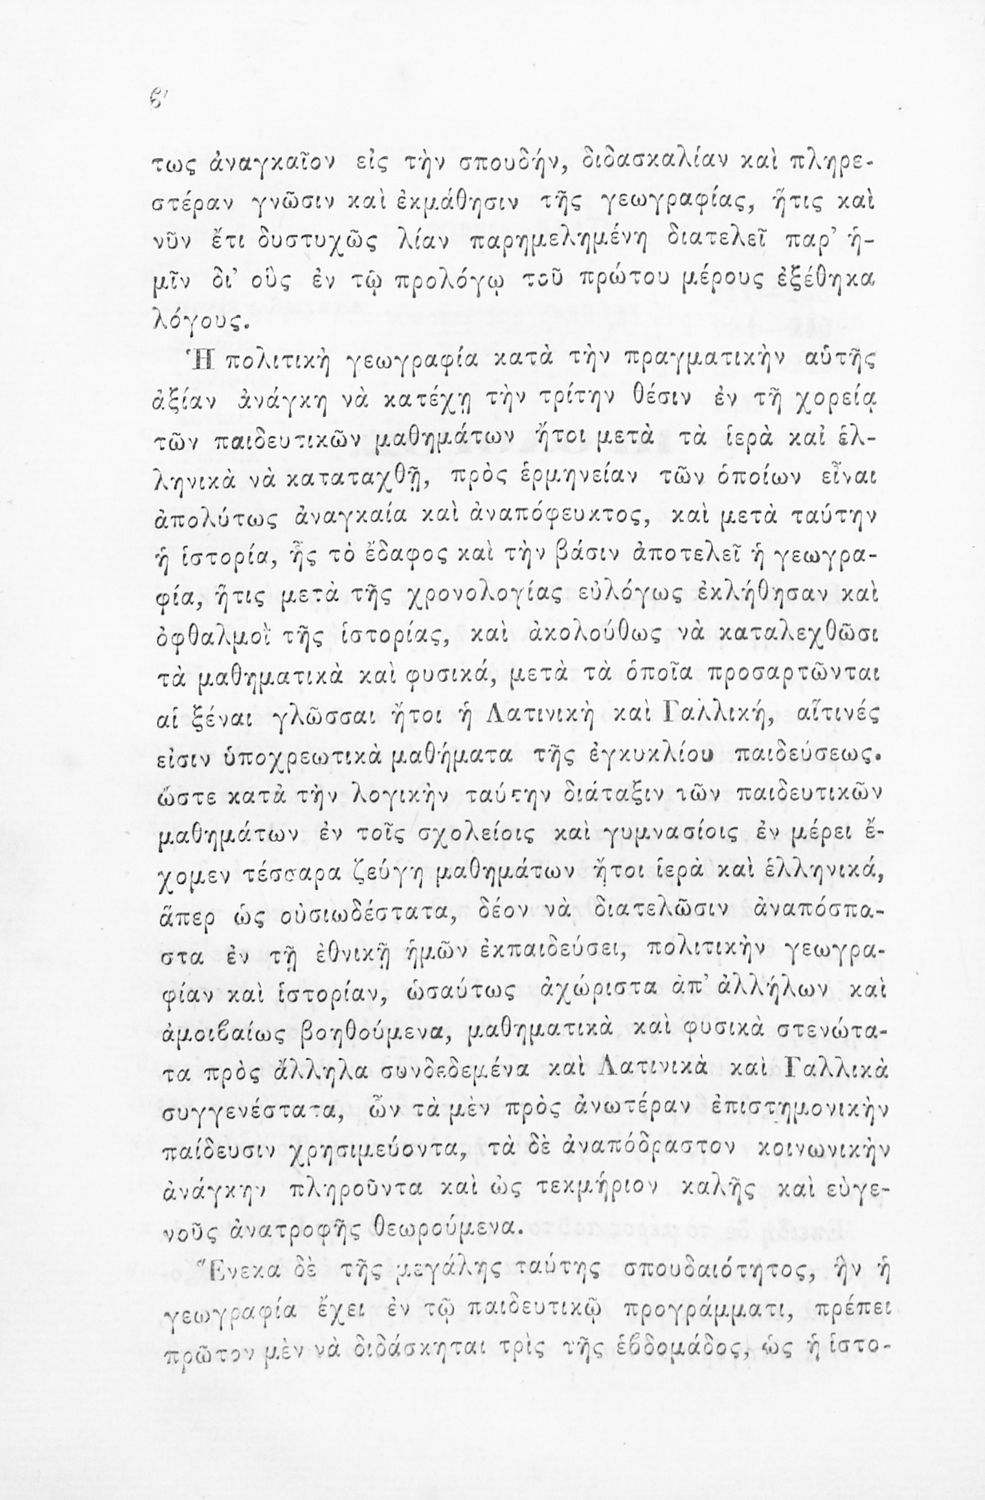 ϐ′
τως ἀναγκαῖον εἰς τὴν σπουδήν, διδασκαλίαν καὶ πληρε-
στέραν γνῶσιν καὶ ἐκμάθησιν τῆς γεωγραφίας, ἥτις καὶ
νῦν ἔτι δυστυχῶς λίαν παρημελημένη διατελεῖ παρ’ ἡ-
μῖν δι’ οὓς ἐν τῷ προλόγῳ τοῦ πρώτου μέρους ἐξέθηκα
λόγους.
Ἡ πολιτικὴ γεωγραφία κατὰ τὴν πραγματικὴν αὑτῆς
ἀξίαν ἀνάγκη νὰ κατέχῃ τὴν τρίτην θέσιν ἐν τῇ χορείᾳ
τῶν παιδευτικῶν μαθημάτων ἤτοι μετὰ τὰ ἱερὰ καὶ ἑλ-
ληνικὰ νὰ καταταχθῇ, πρὸς ἑρμηνείαν τῶν ὁποίων εἶναι
ἀπολύτως ἀναγκαία καὶ ἀναπόφευκτος, καὶ μετὰ ταύτην
ἡ ἱστορία, ἧς τὸ ἔδαφος καὶ τὴν βάσιν ἀποτελεῖ ἡ γεωγρα-
φία, ἥτις μετὰ τῆς χρονολογίας εὐλόγως ἐκλήθησαν καὶ
ὀφθαλμοὶ τῆς ἱστορίας, καὶ ἀκολούθως νὰ καταλεχθῶσι
τὰ μαθηματικὰ καὶ φυσικά, μετὰ τὰ ὁποῖα προσαρτῶνται
αἱ ξέναι γλῶσσαι ἤτοι ἡ Λατινικὴ καὶ Γαλλική, αἵτινές
εἰσιν ὑποχρεωτικὰ μαθήματα τῆς ἐγκυκλίου παιδεύσεως.
ὥστε κατὰ τὴν λογικὴν ταύτην διάταξιν τῶν παιδευτικῶν
μαθημάτων ἐν τοῖς σχολείοις καὶ γυμνασίοις ἐν μέρει ἔ-
χομεν τέσσαρα ζεύγη μαθημάτων ἤτοι ἱερὰ καὶ ἑλληνικά,
ἅπερ ὡς οὐσιωδέστατα, δέον νὰ διατελῶσιν ἀναπόσπα-
στα ἐν τῇ ἐθνικῇ ἡμῶν ἐκπαιδεύσει, πολιτικὴν γεωγρα-
φίαν καὶ ἱστορίαν, ὡσαύτως ἀχώριστα ἀπ’ ἀλλήλων καὶ
ἀμοιϐαίως βοηθούμενα, μαθηματικὰ καὶ φυσικὰ στενώτα-
τα πρὸς ἄλληλα συνδεδεμένα καὶ Λατινικὰ καὶ Γαλλικὰ
συγγενέστατα, ὧν τὰ μὲν πρὸς ἀνωτέραν ἐπιστημονικὴν
παίδευσιν χρησιμεύοντα, τὰ δὲ ἀναπόδραστον κοινωνικὴν
ἀνάγκην πληροῦντα καὶ ὡς τεκμήριον καλῆς καὶ εὐγε-
νοῦς ἀνατροφῆς θεωρούμενα.
Ἕνεκα δὲ τῆς μεγάλης ταύτης σπουδαιότητος, ἣν ἡ
γεωγραφία ἔχει ἐν τῷ παιδευτικῷ προγράμματι, πρέπει
πρῶτον μὲν νὰ διδάσκηται τρὶς τῆς ἑϐδομάδος, ὡς ἡ ἱστο-